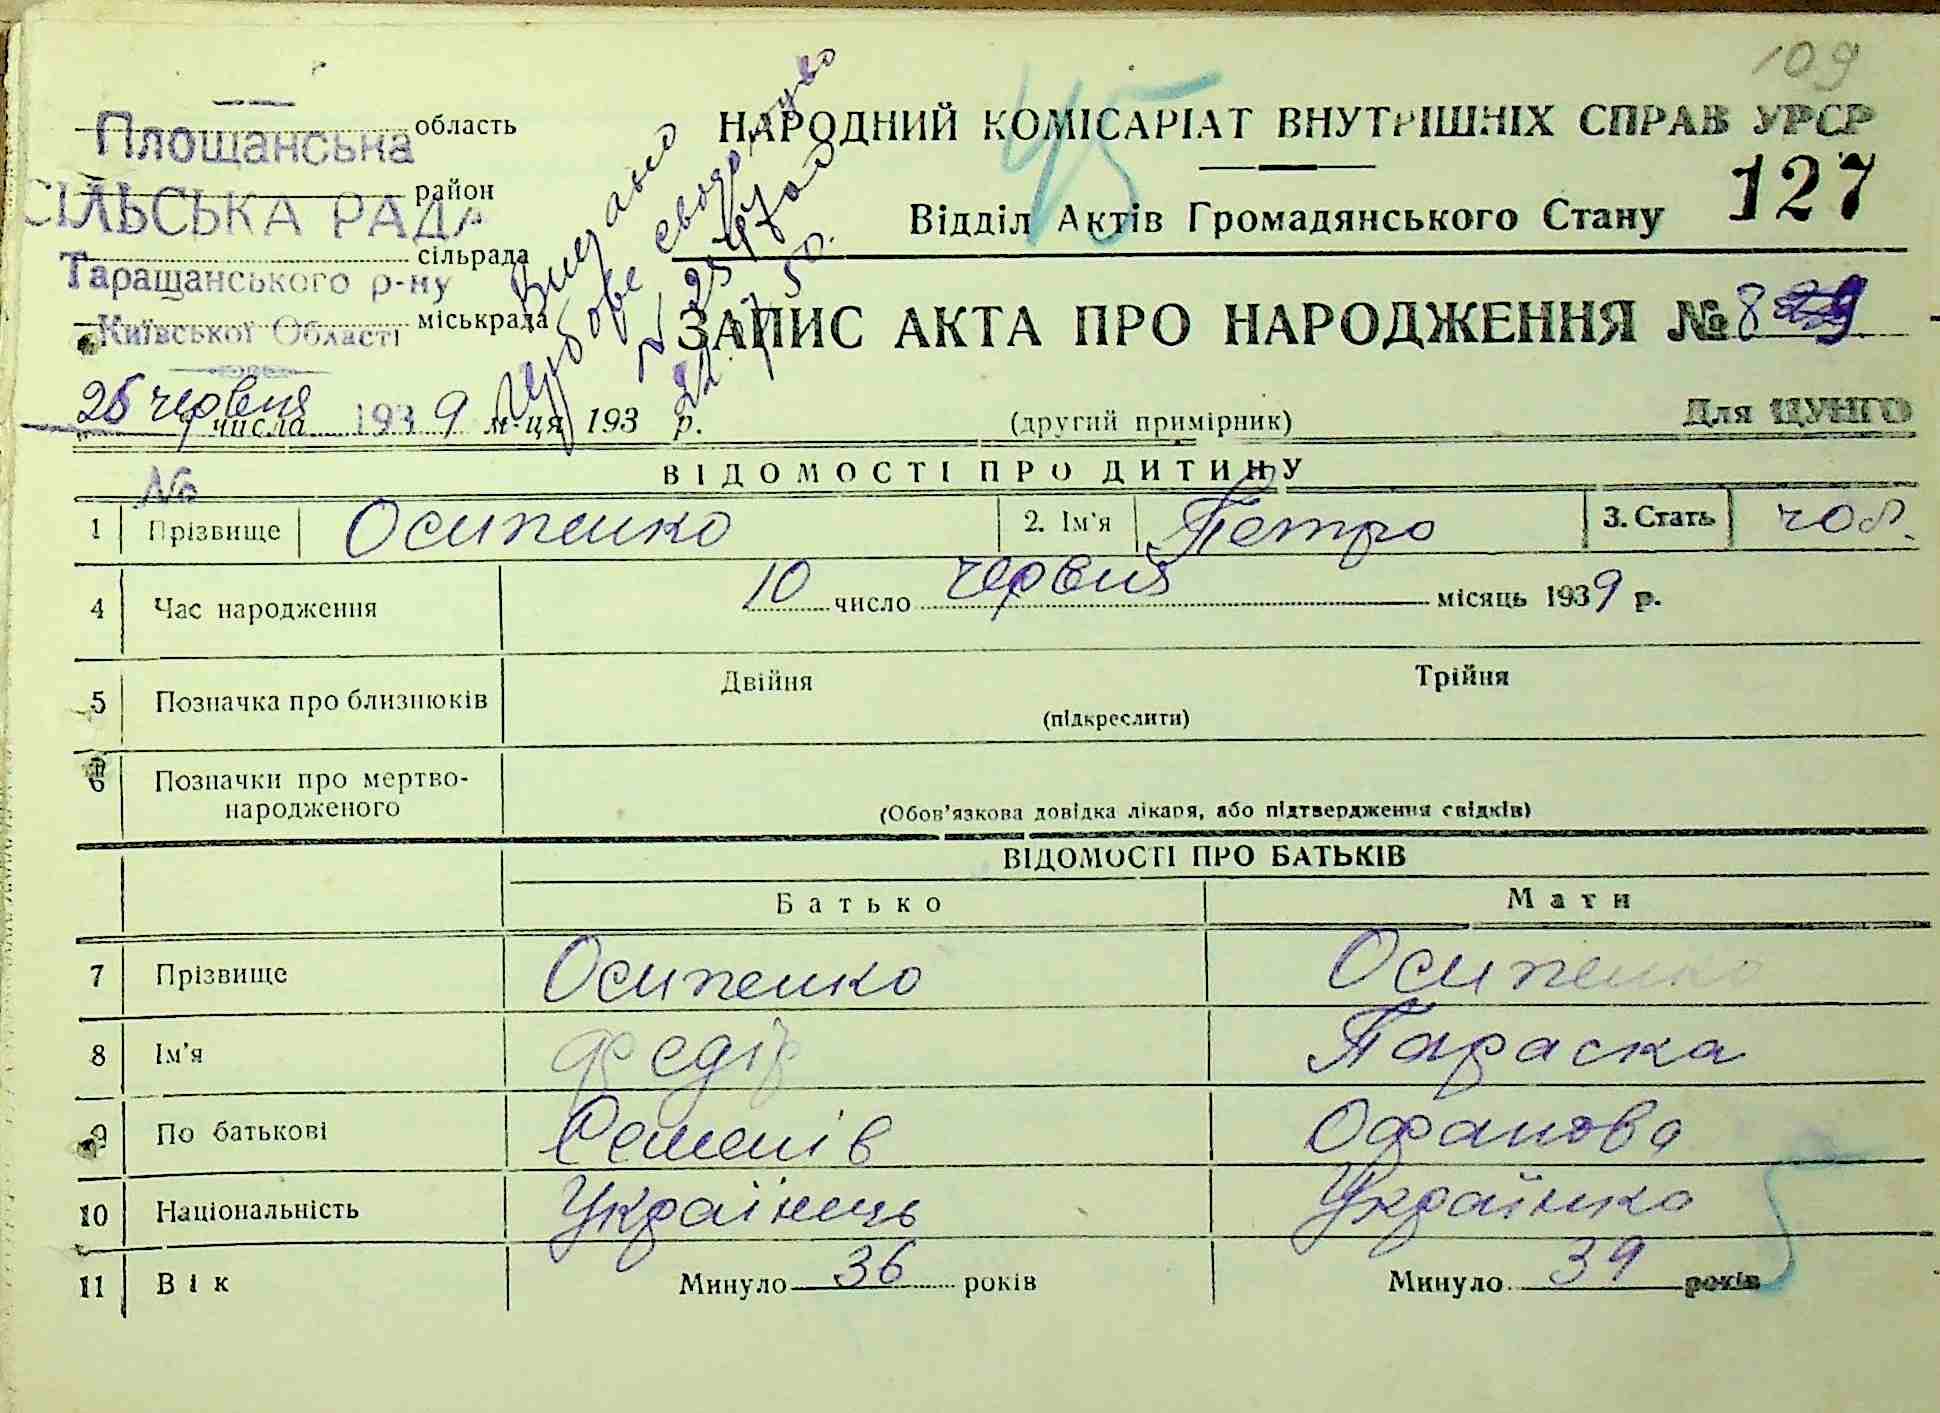 109
45
Площанська область
СІЛЬСЬКА РАДА район
сільрада
Таращанського р-ну
Київської Області міськрада
Видано
НАРОДНИЙ КОМІСАРІАТ ВНУТРІШНІХ СПРАВ УРСР
127
Відділ Актів Громадянського Стану
ЗАПИС АКТА ПРО НАРОДЖЕННЯ № 8
числа 25 червня 1939 м-ця 193 р.
(другий примірник)
Для ЦУНГО
№
ВІДОМОСТІ ПРО ДИТИНУ
1 Прізвище Осипенко 2. Ім'я Петро 3. Стать чол.
4 Час народження 10 число червня місяць 1939 р.
5 Позначка про близнюків Двійня Трійня
(підкреслити)
6 Позначки про мертво-
народженого
(Обов'язкова довідка лікаря, або підтвердження свідків)
ВІДОМОСТІ ПРО БАТЬКІВ
Батько Мати
7 Прізвище Осипенко Осипенко
8 Ім'я Федір Параска
9 По батькові Семенів Офанова
10 Національність Українець Українка
11 Вік Минуло 36 років Минуло 39 років